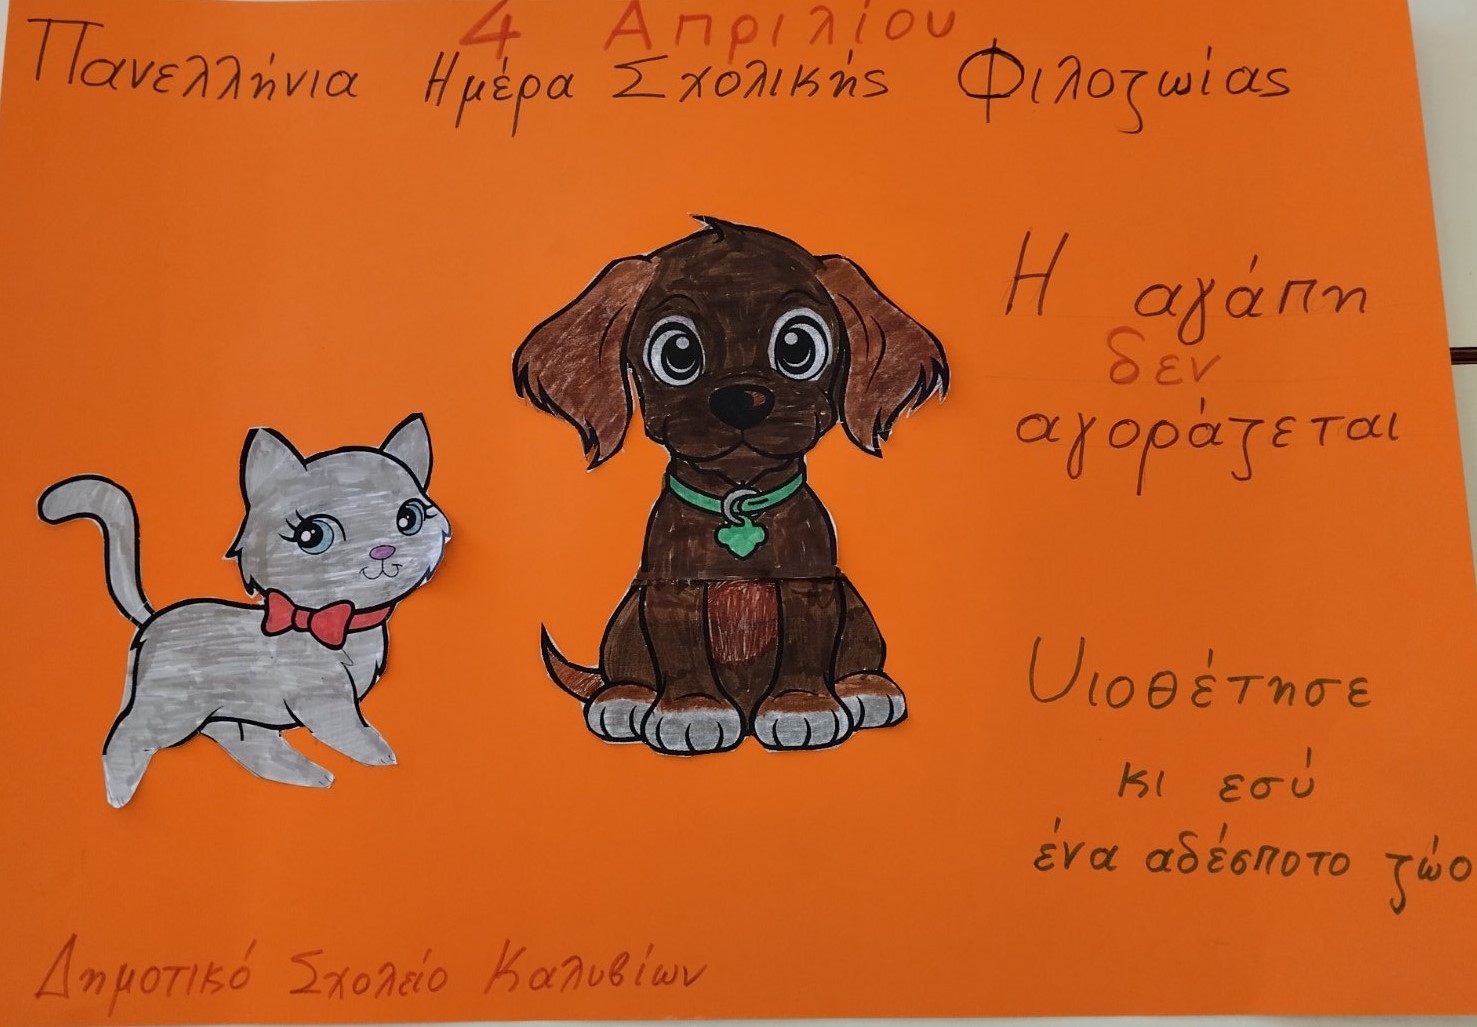 4 Απριλίου
Πανελλήνια Ημέρα Σχολικής Φιλοζωίας
Η αγάπη
δεν
αγοράζεται
Υιοθέτησε
κι εσύ
ένα αδέσποτο ζώο
Δημοτικό Σχολείο Καλυβίων